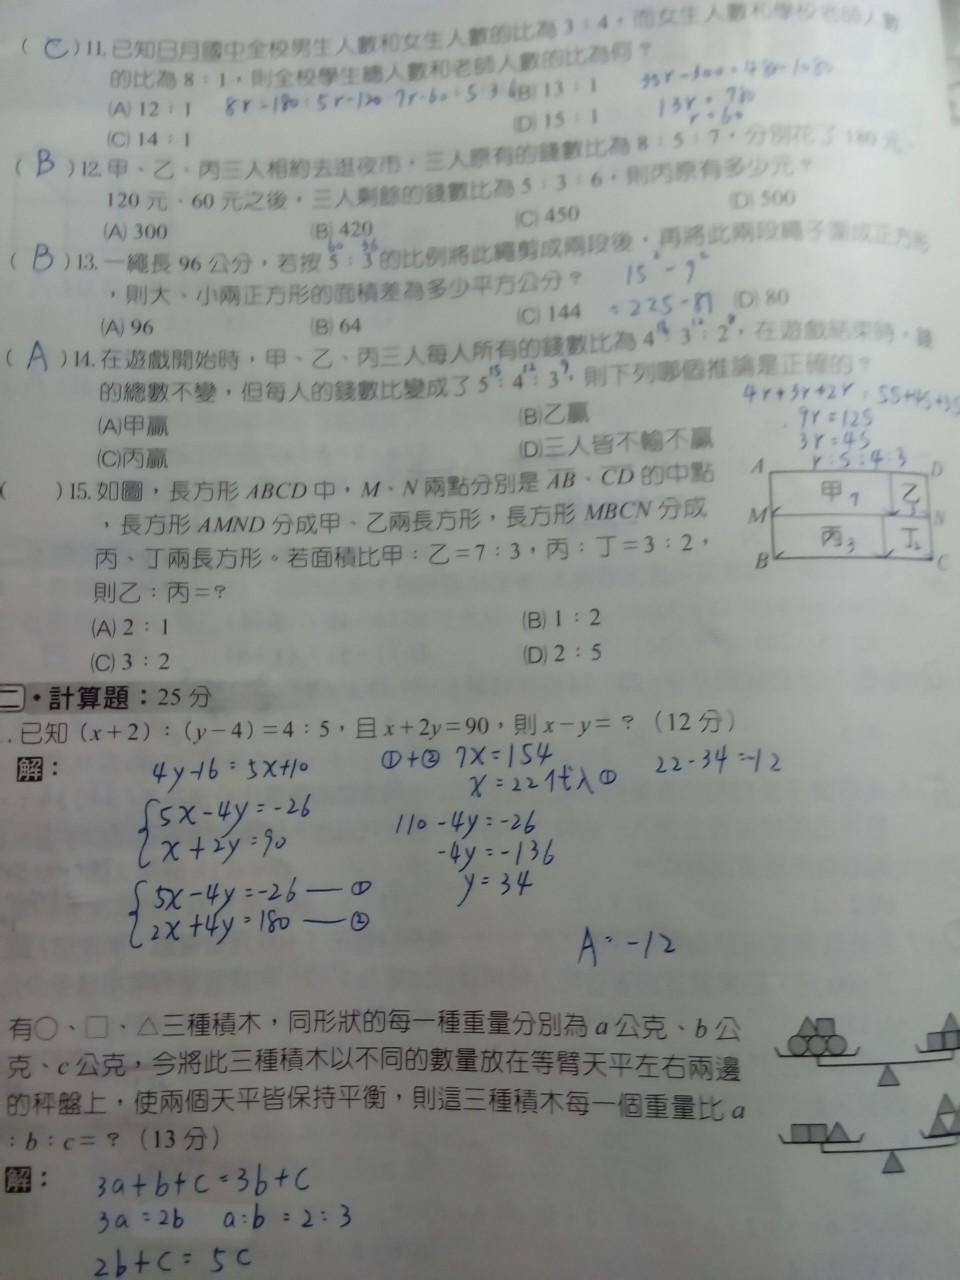 ( C )11. 已知日月國中全校男生人數和女生人數的比為 3：4，而女生人數和學校老師人數
的比為 8：1，則全校學生總人數和老師人數的比為何？
(A) 12：1
(B) 13：1
(C) 14：1
(D) 15：1
8r-180：5r-120
13r = 780
r = 60
( B )12. 甲、乙、丙三人相約去逛夜市，三人原有的錢數比為 8：5：7，分別花了 180 元、
120 元、60 元之後，三人剩餘的錢數比為 5：3：6，則丙原有多少元？
(A) 300 (B) 420 (C) 450 (D) 500
60 36
( B )13. 一繩長 96 公分，若按 5：3 的比例將此繩剪成兩段後，再將此兩段繩子圍成正方形
，則大、小兩正方形的面積差為多少平方公分？
15² - 9²
= 225 - 81
(A) 96 (B) 64 (C) 144 (D) 80
( A )14. 在遊戲開始時，甲、乙、丙三人每人所有的錢數比為 4：3：2，在遊戲結束時，錢
的總數不變，但每人的錢數比變成了 5：4：3，則下列哪個推論是正確的？
15 12 9
(A)甲贏 (B)乙贏
(C)丙贏 (D)三人皆不輸不贏
4r+3r+2r = 5s+4s+3s
9r = 12s
3r = 4s
r：s：4：3
( )15. 如圖，長方形 ABCD 中，M、N 兩點分別是 AB、CD 的中點
，長方形 AMND 分成甲、乙兩長方形，長方形 MBCN 分成
丙、丁兩長方形。若面積比甲：乙＝7：3，丙：丁＝3：2，
則乙：丙＝？
(A) 2：1 (B) 1：2
(C) 3：2 (D) 2：5
A D
甲 7 乙
M N
丙 3 丁 2
B C
二・計算題：25 分
. 已知 (x＋2)：(y－4)＝4：5，且 x＋2y＝90，則 x－y＝？（12 分）
解：
4y-16 = 5x+10
5x-4y = -26
x+2y = 90
5x-4y = -26 — ①
2x+4y = 180 — ②
①+② 7x = 154
x = 22 代入①
110 - 4y = -26
-4y = -136
y = 34
22-34 = -12
A = -12
有○、□、△三種積木，同形狀的每一種重量分別為 a 公克、b 公
克、c 公克，今將此三種積木以不同的數量放在等臂天平左右兩邊
的秤盤上，使兩個天平皆保持平衡，則這三種積木每一個重量比 a
：b：c＝？（13 分）
解：
3a+b+c = 3b+c
3a = 2b a:b = 2:3
2b+c = 5c